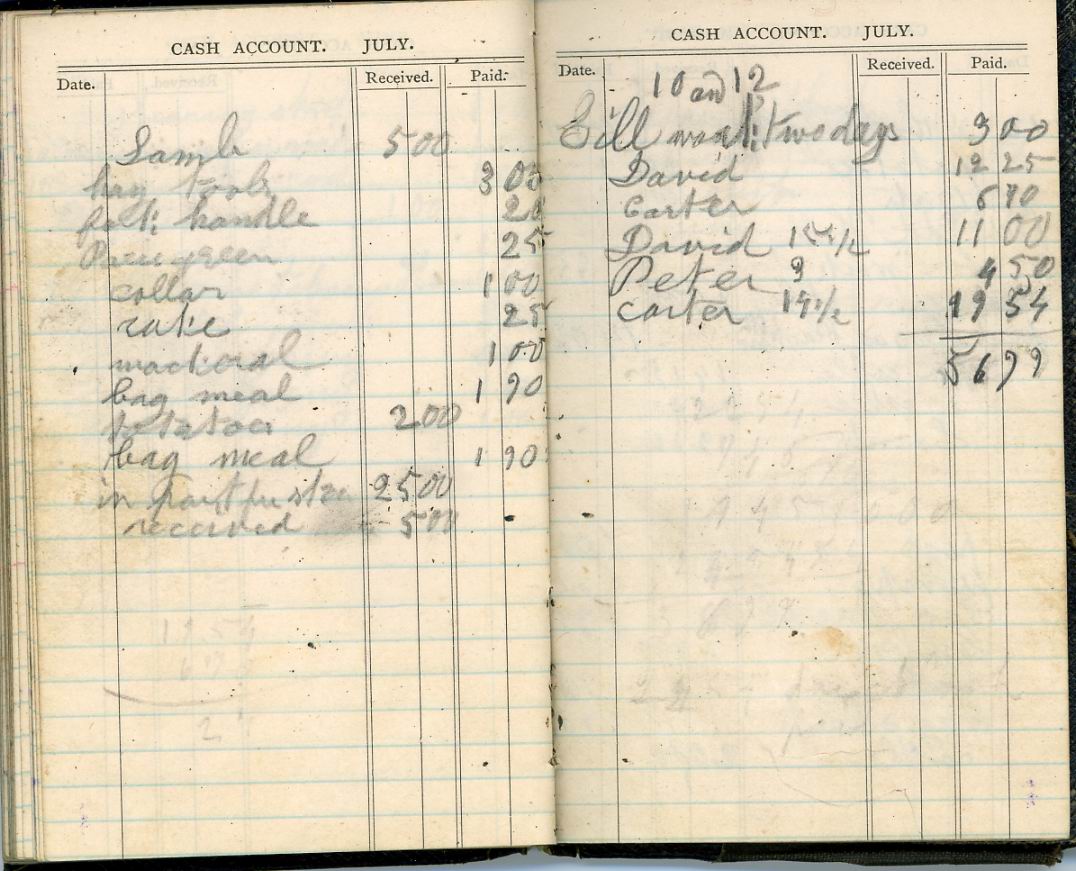 CASH ACCOUNT. JULY.
Date. Received. Paid.
Lamb 5 00
hay tools 3 05
fork handle 20
Paris green 25
collar 1 00
rake 25
mackeral 1 00
bag meal 1 90
potatoes 2 00
bag meal 1 90
in part 25 00
received 5 00
19 54
CASH ACCOUNT. JULY.
Date. Received. Paid.
10 and 12
Bill work two days 3 00
David 12 25
Carter
David 11 00
Peter 9 4 50
Carter 19 54
56 99